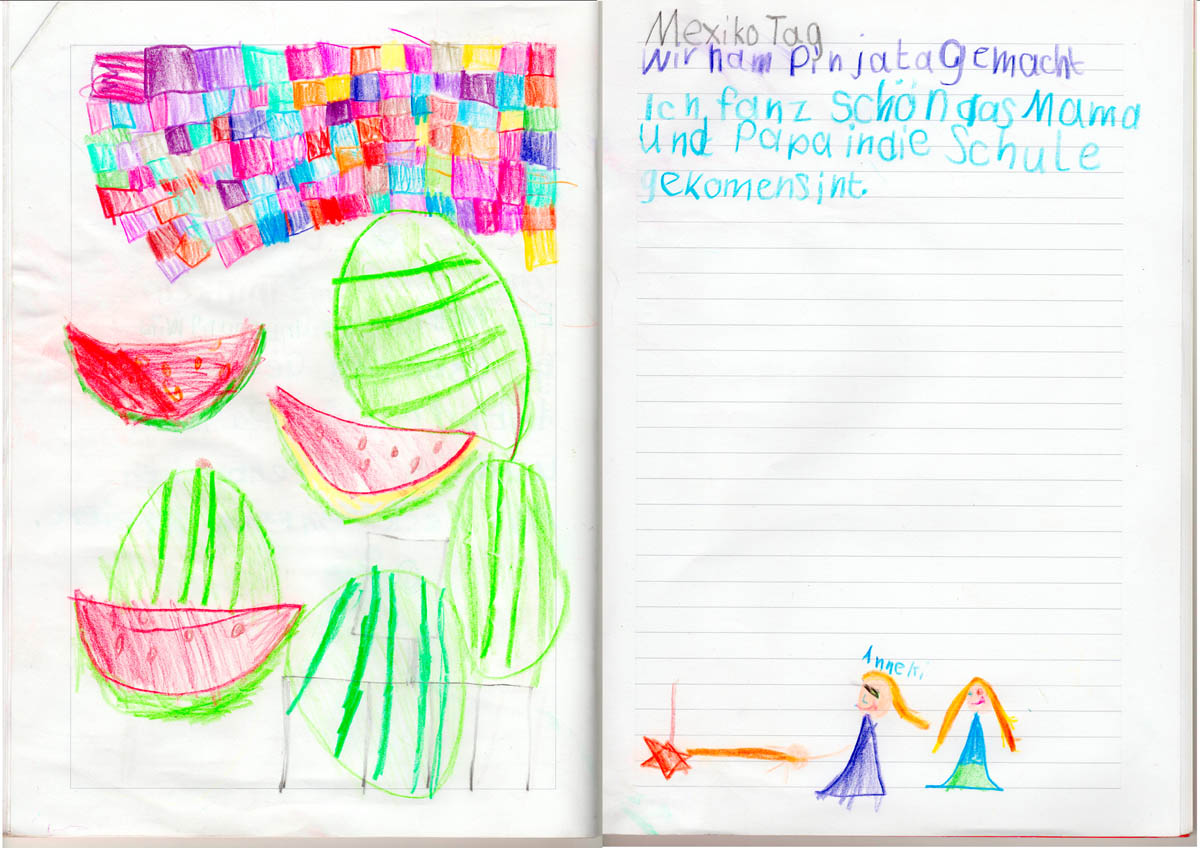 Mexiko Tag
Wir ham Pinjata gemacht
Ich fanz schön das Mama
Und Papa in die Schule
gekomen sint.
Anneki